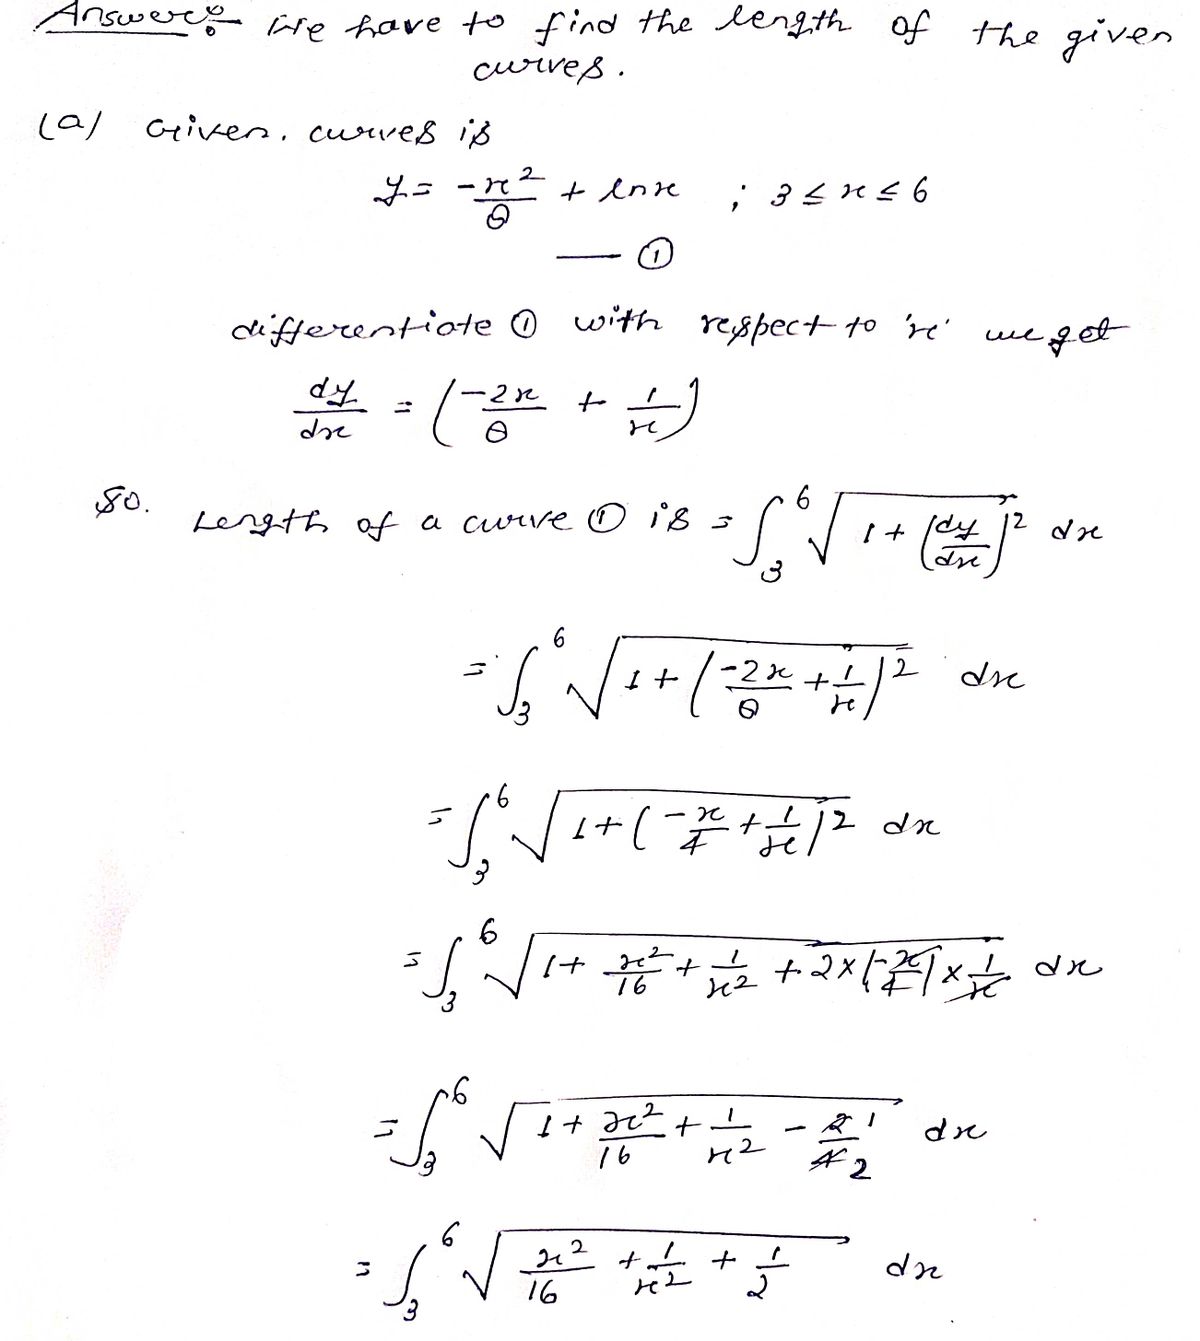 Answer:- We have to find the length of the given
curves.
(a) Given. curves is
y = -x²/8 + lnx ; 3 ≤ x ≤ 6
— ①
differentiate ① with respect to 'x' we get
dy/dx = (-2x/8 + 1/x)
So. Length of a curve ① is = ∫₃⁶ √(1 + (dy/dx)²) dx
= ∫₃⁶ √(1 + (-2x/8 + 1/x)²) dx
= ∫₃⁶ √(1 + (-x/4 + 1/x)²) dx
= ∫₃⁶ √(1 + x²/16 + 1/x² + 2×(-x/4)×1/x) dx
= ∫₃⁶ √(1 + x²/16 + 1/x² - 2̸ 1/4̸ 2) dx
= ∫₃⁶ √(x²/16 + 1/x² + 1/2) dx